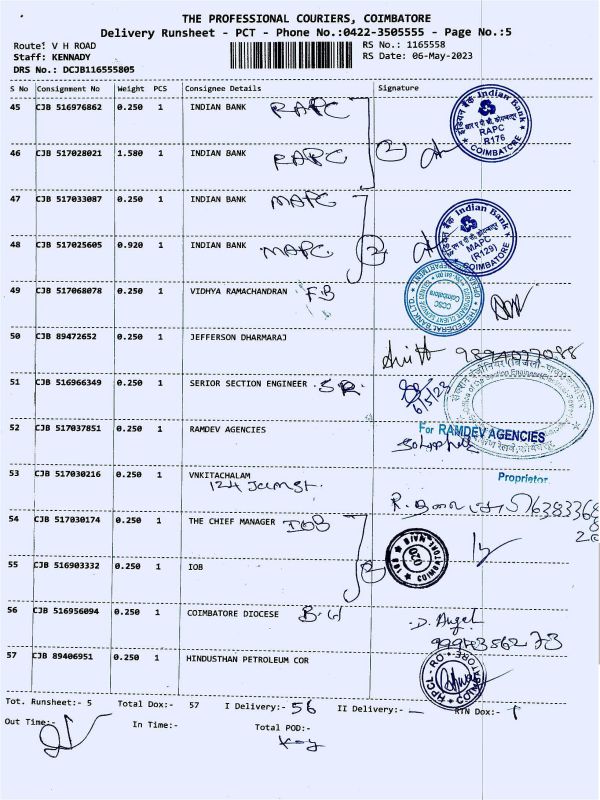 THE PROFESSIONAL COURIERS, COIMBATORE
Delivery Runsheet - PCT - Phone No.:0422-3505555 - Page No.:5
Route: V H ROAD RS No.: 1165558
Staff: KENNADY RS Date: 06-May-2023
DRS No.: DCJB116555805
S No Consignment No Weight PCS Consignee Details Signature
45 CJB 516976862 0.250 1 INDIAN BANK RAPC
Indian Bank RAPC R176 COIMBATORE
46 CJB 517028021 1.580 1 INDIAN BANK RAPC 2
47 CJB 517033087 0.250 1 INDIAN BANK MAPC
48 CJB 517025605 0.920 1 INDIAN BANK MAPC 2
Indian Bank MAPC (R129) COIMBATORE
49 CJB 517068078 0.250 1 VIDHYA RAMACHANDRAN FB
THE FEDERAL BANK LTD. CCSC Coimbatore
50 CJB 89472652 0.250 1 JEFFERSON DHARMARAJ
51 CJB 516966349 0.250 1 SERIOR SECTION ENGINEER SR
6/5/23
52 CJB 517037851 0.250 1 RAMDEV AGENCIES
For RAMDEV AGENCIES
Proprietor
53 CJB 517030216 0.250 1 VNKITACHALAM
54 CJB 517030174 0.250 1 THE CHIEF MANAGER IOB
55 CJB 516903332 0.250 1 IOB 2
IOB COIMBATORE MAIN 020
56 CJB 516956094 0.250 1 COIMBATORE DIOCESE
D. Angel
57 CJB 89406951 0.250 1 HINDUSTHAN PETROLEUM COR
HPCL-RO COIMBATORE
Tot. Runsheet:- 5 Total Dox:- 57 I Delivery:- 56 II Delivery:- — RTN Dox:- 1
Out Time:- In Time:- Total POD:-